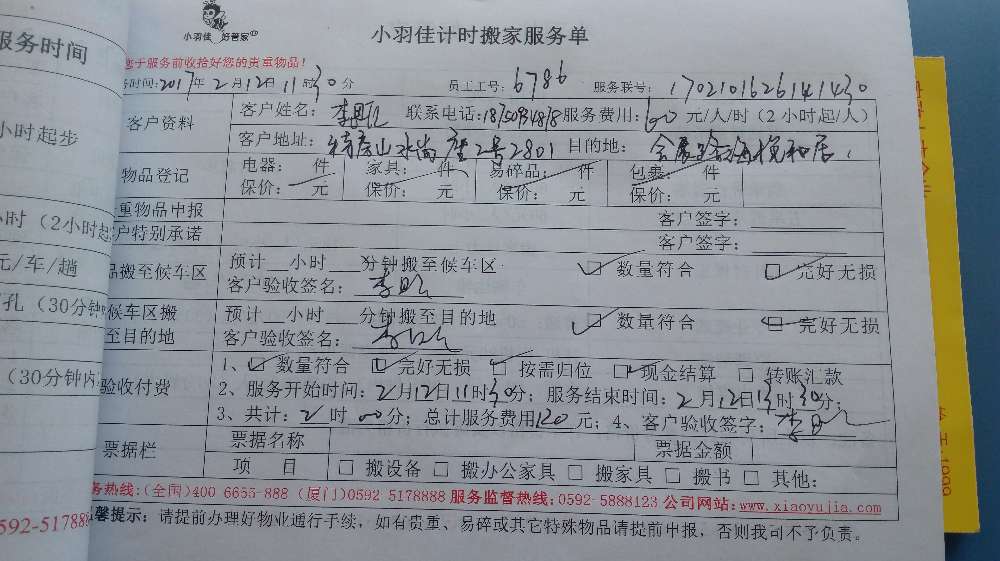 小羽佳 好管家
小羽佳计时搬家服务单
服务时间
您于服务前收拾好您的贵重物品!
时间:2017年2月12日11时30分 员工工号:6786 服务联号:1702101626141430
小时起步
客户资料
客户姓名: 联系电话: 服务费用:60元/人/时(2小时起/人)
客户地址:特房山水尚座2号2801 目的地:
物品登记
电器: 件 家具: 件 易碎品: 件 包裹: 件
保价: 元 保价: 元 保价: 元 保价: 元
重物品申报 客户签字:
客户特别承诺 客户签字:
小时(2小时起
元/车/趟
品搬至候车区
预计 小时 分钟搬至候车区 数量符合 完好无损
客户验收签名:
孔(30分钟
候车区搬至目的地
预计 小时 分钟搬至目的地 数量符合 完好无损
客户验收签名:
(30分钟内
验收付费
1、 数量符合 完好无损 按需归位 现金结算 转账汇款
2、服务开始时间:2月12日11时30分; 服务结束时间:2月12日13时30分;
3、共计:2时00分; 总计服务费用120元; 4、客户验收签字:
票据栏
票据名称 票据金额
项 目 搬设备 搬办公家具 搬家具 搬书 其他:
务热线:(全国)400 6655-888 (厦门)0592 5178888 服务监督热线:0592-5888123 公司网站:www.xiaoyujia.com
0592-517888
馨提示: 请提前办理好物业通行手续, 如有贵重、易碎或其它特殊物品请提前申报, 否则我司不予负责。